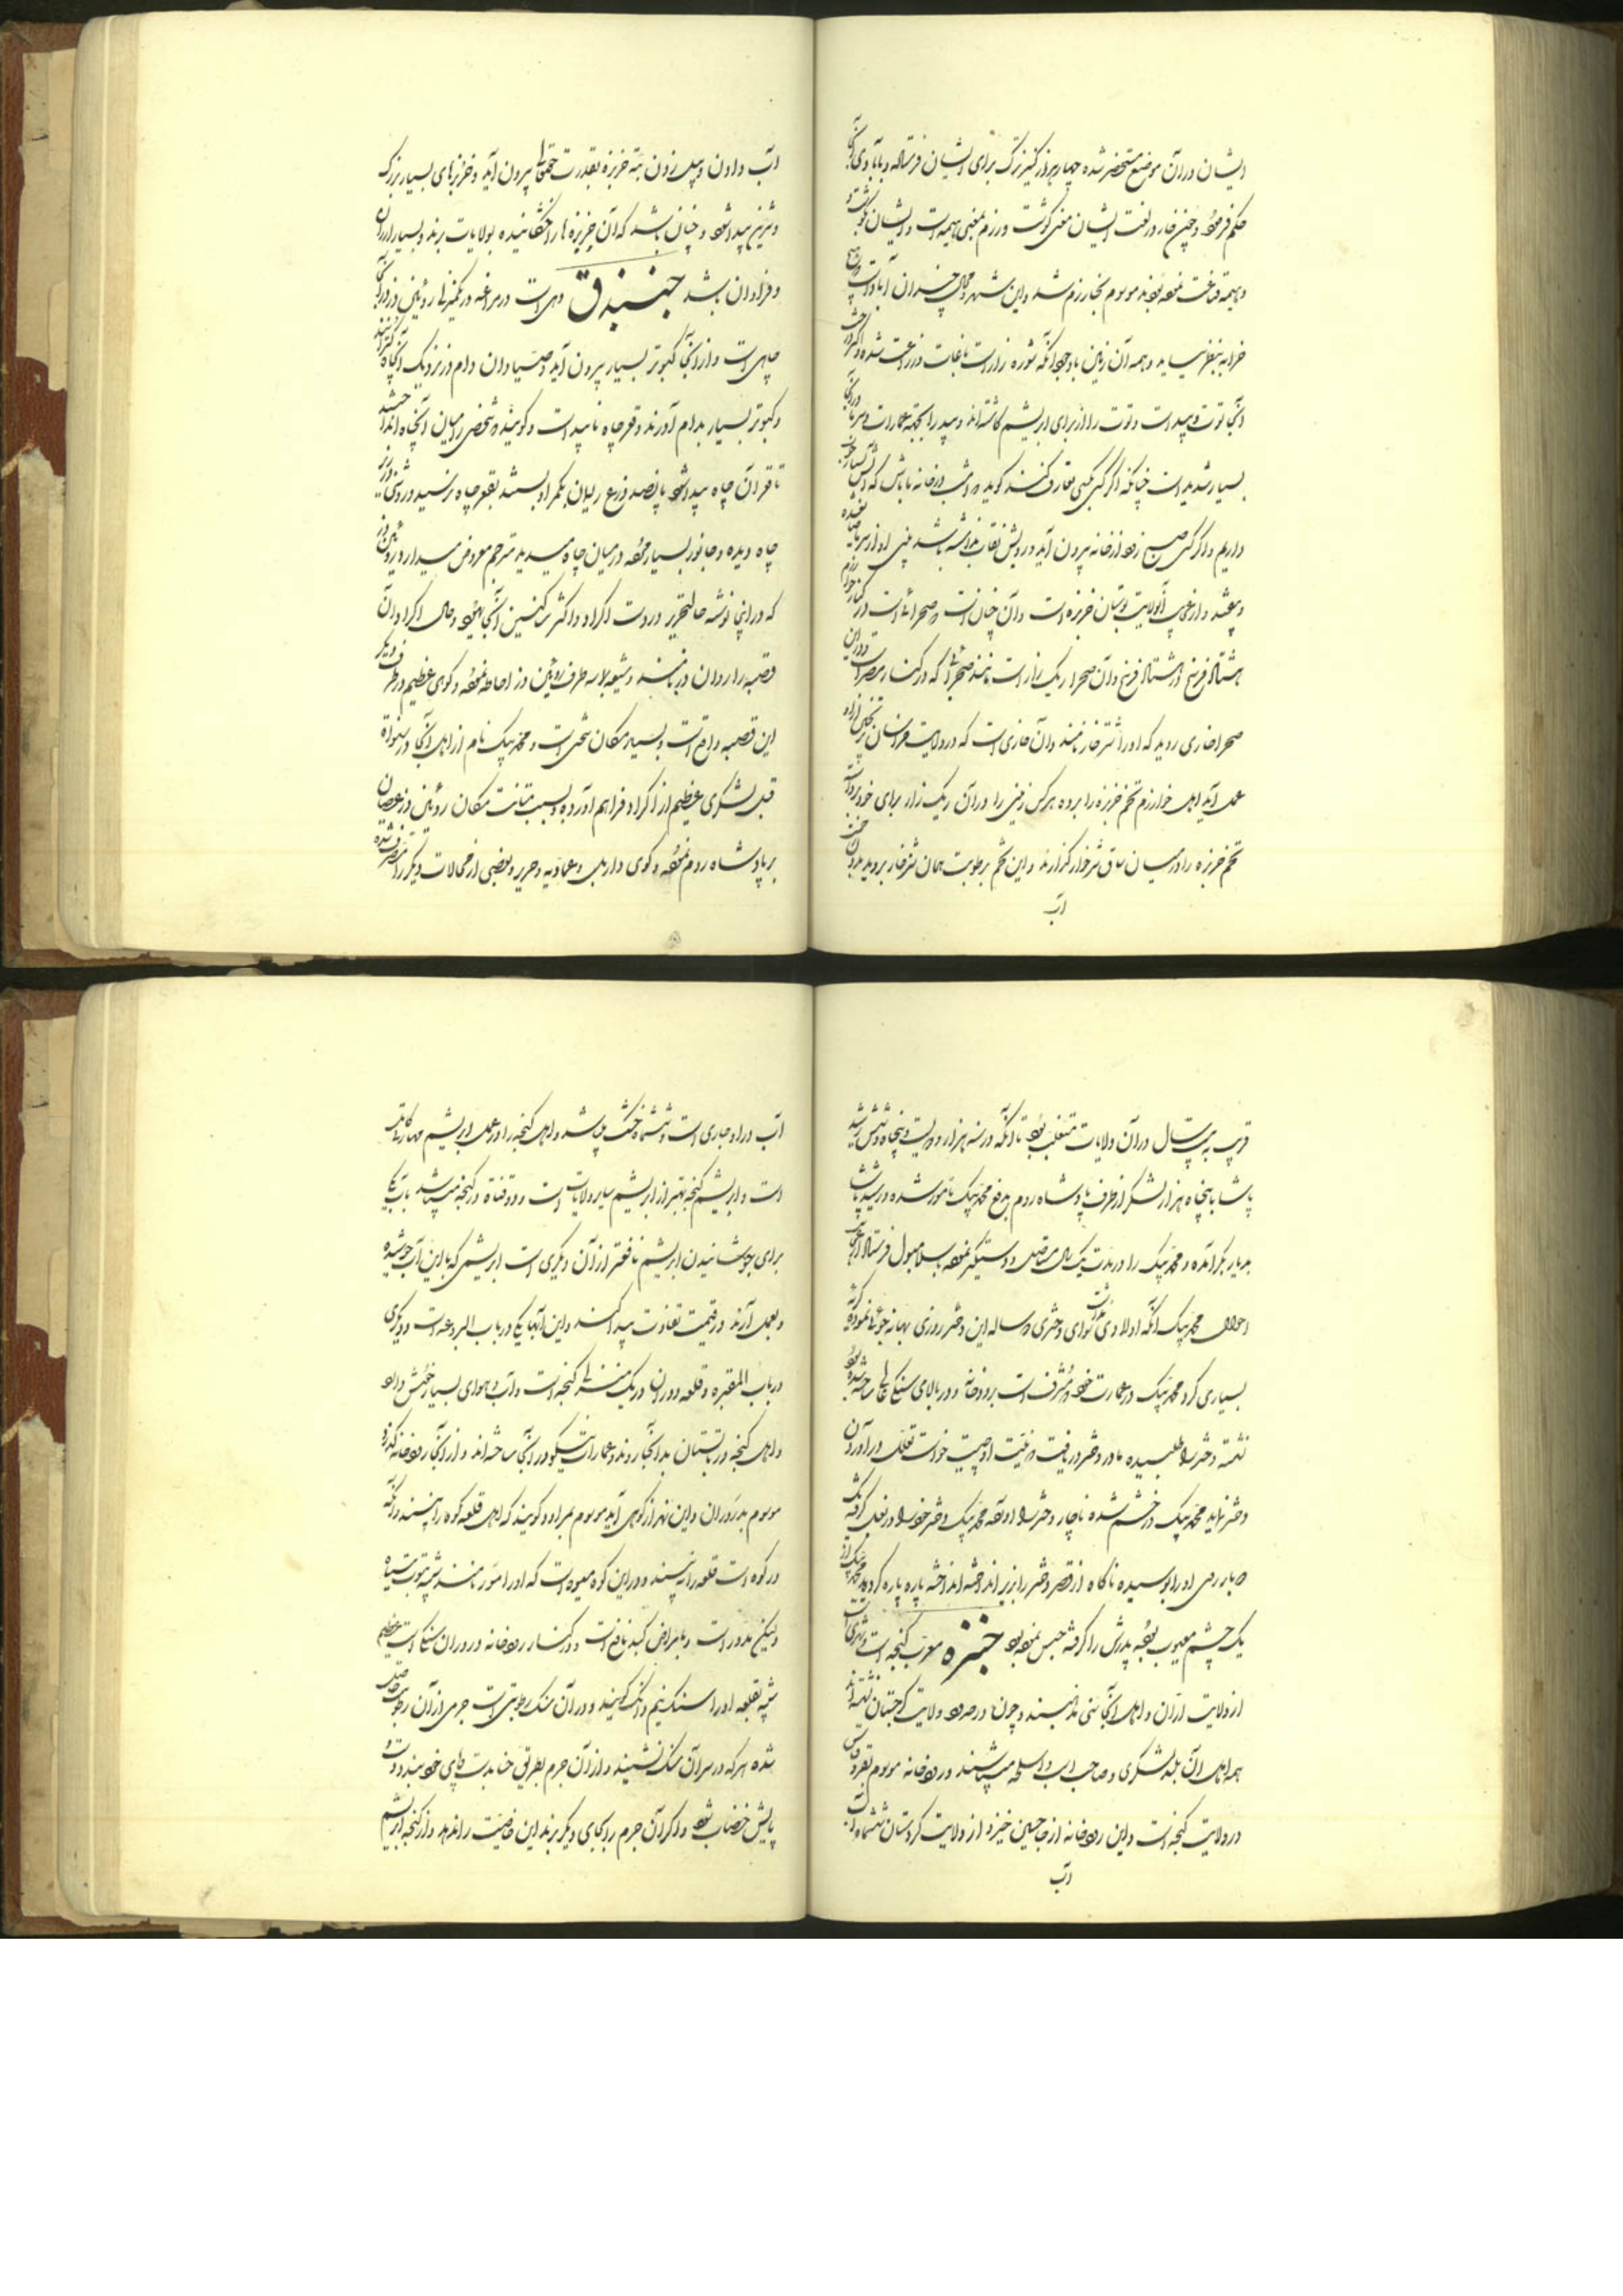 ایشان در آن موضع مستحضر شده چهار هزار کنیز ترک برای ایشان فرستاد و بآبادی آنجا
حکم فرمود و چنین خار در لغت ایشان معنی گوشت و رزم بمعنی هیمه است و ایشان بگوشت و
هیمه قناعت نموده بودند موسوم بخارزم شد و این شهر و محال چندان آباد است
خرابه بنظر نمیاید و همه آن زمین با وجود آنکه شوره زار است باغات و زراعت شده و اکثر درخت
آنجا توت و بید است و توت را از برای ابریشم کاشته‌اند و بید را بجهة عمارات و سرما در آنجا
بسیار شدید است چنانکه اگر کسی بکسی تعارف کند گوید امشب در خانه ما باش که آتش بسیار خوب
داریم و اگر کسی صبح زود از خانه بیرون آید و رویش نقاب نداشته باشد بینی او از سرما
بیفتد و از غرایب آنولایت بوستان خربزه است و آن چنان است صحرائیست در کنار خوارزم
هشتاد فرسخ در هشتاد فرسخ و آن صحرا ریگ زار است مانند صحرائی که در کنار مصر است و در این
صحرا خاری روید که او را شتر خار نامند و آن خاری است که در ولایت خراسان ترنجبین از او
بعمل آید اهل خوارزم تخم خربزه را برده هر کس زمینی را در آن ریگ زار برای خود برداشت
تخم خربزه را در میان ساق شتر خار گذارند و این تخم برطوبت همان شتر خار بروید بدون
آب
آب دادن و بیل زدن بته خربزه بقدرت حقتعالی بیرون آید و خربزهای بسیار بزرگ
و شیرین پیدا شود و چنان باشد که آن خربزه ها را خشکانیده بولایات برند و بسیار ارزان
و فراوان باشد جنبذق دهی است در مراغه در یکمنزل روئین دز در آنجا
چاهی است و از آنجا کبوتر بسیار بیرون آید و صیادان دام در نزدیک آنچاه گسترانند
و کبوتر بسیار بدام آورند و قعر چاه ناپیداست و گویند شخصی را میان آنچاه انداختند
تا قعر آن چاه پیدا شود پانصد ذرع ریسمان بکمر او بستند بقعر چاه نرسید و روشنی در زیر
چاه دیده و جانور بسیار مرده در میان چاه میدید مترجم معروض میدارد روئین دز
که در اینجا نوشته حالتحریر در دست اکراد و اکثر ساکنین آنجا یهود و حال اکراد آن
قصبه را رواندز نامند و شیعه بلاسه طرف روئین دز احاطه نموده و کوهی عظیم در طرف دیگر
این قصبه واقع است و بسیار مکان سختی است و محمد بیک نام از اهل آنجا در سنواة
قبل لشکری عظیم از اکراد فراهم آورده و بسبب متانت مکان روئین دز عصیان
بر پادشاه روم نموده و کوی و اربیل و عمادیه و حریر و بعضی از محالات دیگر را متصرف شده
قریب به بیست سال در آن ولایات متغلب بود تا آنکه در سنه هزار و دویست و پنجاه و شش رشید
پاشا با پنجاه هزار لشکر از طرف پادشاه روم بدفع محمد بیک مأمور شده و رشید پاشا
بدیار بکر آمده و محمد بیک را در مدت یکسال مستاصل و دستگیر نموده باسلامبول فرستاد
احوال محمد بیک آنکه اولادی نداشت سوای دختری ده ساله این دختر روزی بهانه جوئی نموده گریه
بسیاری کرد محمد بیک در عمارت خود که مشرف است برودخانه و در بالای سنگی ساخته شده بود
نشسته دختر را طلبیده مادر دختر دریافت که نیت او چیست خواست تعلل در آوردن
دختر نماید محمد بیک در خشم شده ناچار دختر را آورده محمد بیک دختر خود را در بغل گرفته
ده بار روی او را بوسیده ناگاه از قصر دختر را بزیر انداخته پاره پاره گردید محمد بیک از
یک چشم معیوب بوده پدرش را گرفته حبس نموده بود جنزه معرب گنجه است شهری است
از ولایت ارّان و اهل آنجا سنی مذهبند و چون در سرحد ولایت گرجستان نشسته‌اند
همه اهل آن بلد لشکری و صاحب اسب و اسلحه میباشند و رودخانه موسوم بقردقاس
در ولایت گنجه است و این رودخانه از جانبین خیزد از ولایت گرجستان ششماه آب
آب
آب در او جاری است و ششماه خشک میباشد و اهل گنجه را در عمل ابریشم مهارت کامله
است و ابریشم گنجه بهتر از ابریشم سایر ولایات است و دو قناة در گنجه میباشد آب یکی
برای جوشانیدن ابریشم نافعتر از آن دیگری است ابریشمی که با این آب جوشیده
و بعمل آرند در قیمت تفاوت پیدا کند و این آبها یکی در باب البردعه است و دیگری
در باب المقبره و قلعه دوران در یک منزلی گنجه است و آب و هوای بسیار خوش دارد
و اهل گنجه در تابستان بدانجا روند و عمارات نیکو در آنجا ساخته‌اند و از آنجا رودخانه گذرد
موسوم بدروران و این نهر از کوهی آید موسوم بمراد و گویند که اهل قلعه کوه را نبینند و آنکه
در کوه است قلعه را نبیند و در این کوه میوه است که او را امور نامند شبیه بتوت سیاه
ولیکن مدور است و بامراض کبد نافع است و در کنار رودخانه دروران سنگی است عظیم
شبیه بقلعه او را سنگ نیم دانگ گویند و در آن سنگ رطوبتی است جرمی از آن رطوبت حاصل
شده هر که در سر آن سنگ نشیند و از آن جرم بطریق حنا بدست و پای خود بندد دست و
پایش خضاب شود و اگر آن جرم را بجای دیگر برند این خاصیت را ندهد و از گنجه ابریشم